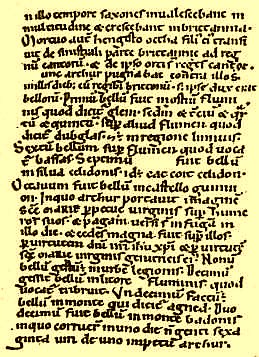 n illo tempore saxones inualescebant in
multitudine & crescebant inbrittannia.
Mortuo aut̄ hengisto octha filiꝰ eiꝰ transi
uit de sinistrali parte brittannie ad reg
nū cantorū. & de ipso orti s̄t reges cantoꝝ.
Tunc arthur pugnabat contra illos.
in illis dieb; cū regib; brittonū. s; ipse dux erat
bellorū. Primū bellū fuit inostiū flumi
nis quod dicit̄ glein. sedm̄ & t̄ciū & q̄r
tū & quintū. sup̄ aliud flumen quod
dicit̄ dubglas. & ē in regione linnuis
Sextū bellum sup̄ flumen quod uoca
t̄ bassas. Septimū fuit bellū
in silua celidonis. id ē cat coit celidon.
Octauum fuit bellū incastello guinni
on. Inquo arthur portauit imaginē
scē marie p̄petue uirginis sup̄ hume
ros suos. & pagani uersi s̄t in fuga in
illo die. & cedes magna fuit sup̄ illos.
p̄ uirtutem dn̄i nr̄i ihū xp̄i & p̄ uirtutē
scē marie uirginis genitricis eiꝰ. Nonū
bellū gestū ē inurbe legionis. Decimū
gessit bellū inlitore fluminis quod
uocat̄ tribruit. Undecimū factū ē
bellū inmonte qui dicit̄ agned. Duo
decimū fuit bellū inmonte badonis.
inquo corruer̄ in uno die n̄genti sexa
ginta uiri de uno impetu arthur.